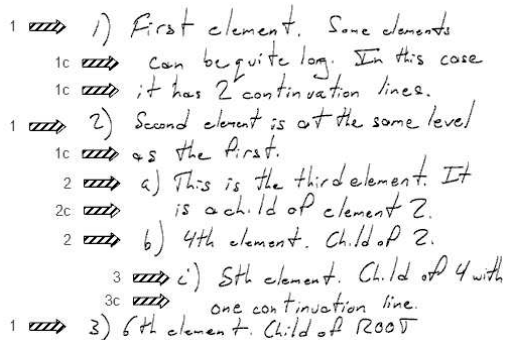 1 1) First element. Some elements
1c can be quite long. In this case
1c it has 2 continuation lines.
1 2) Second element is at the same level
1c as the first.
2 a) This is the third element. It
2c is a child of element 2.
2 b) 4th element. Child of 2.
3 i) 5th element. Child of 4 with
3c one continuation line.
1 3) 6th element. Child of ROOT